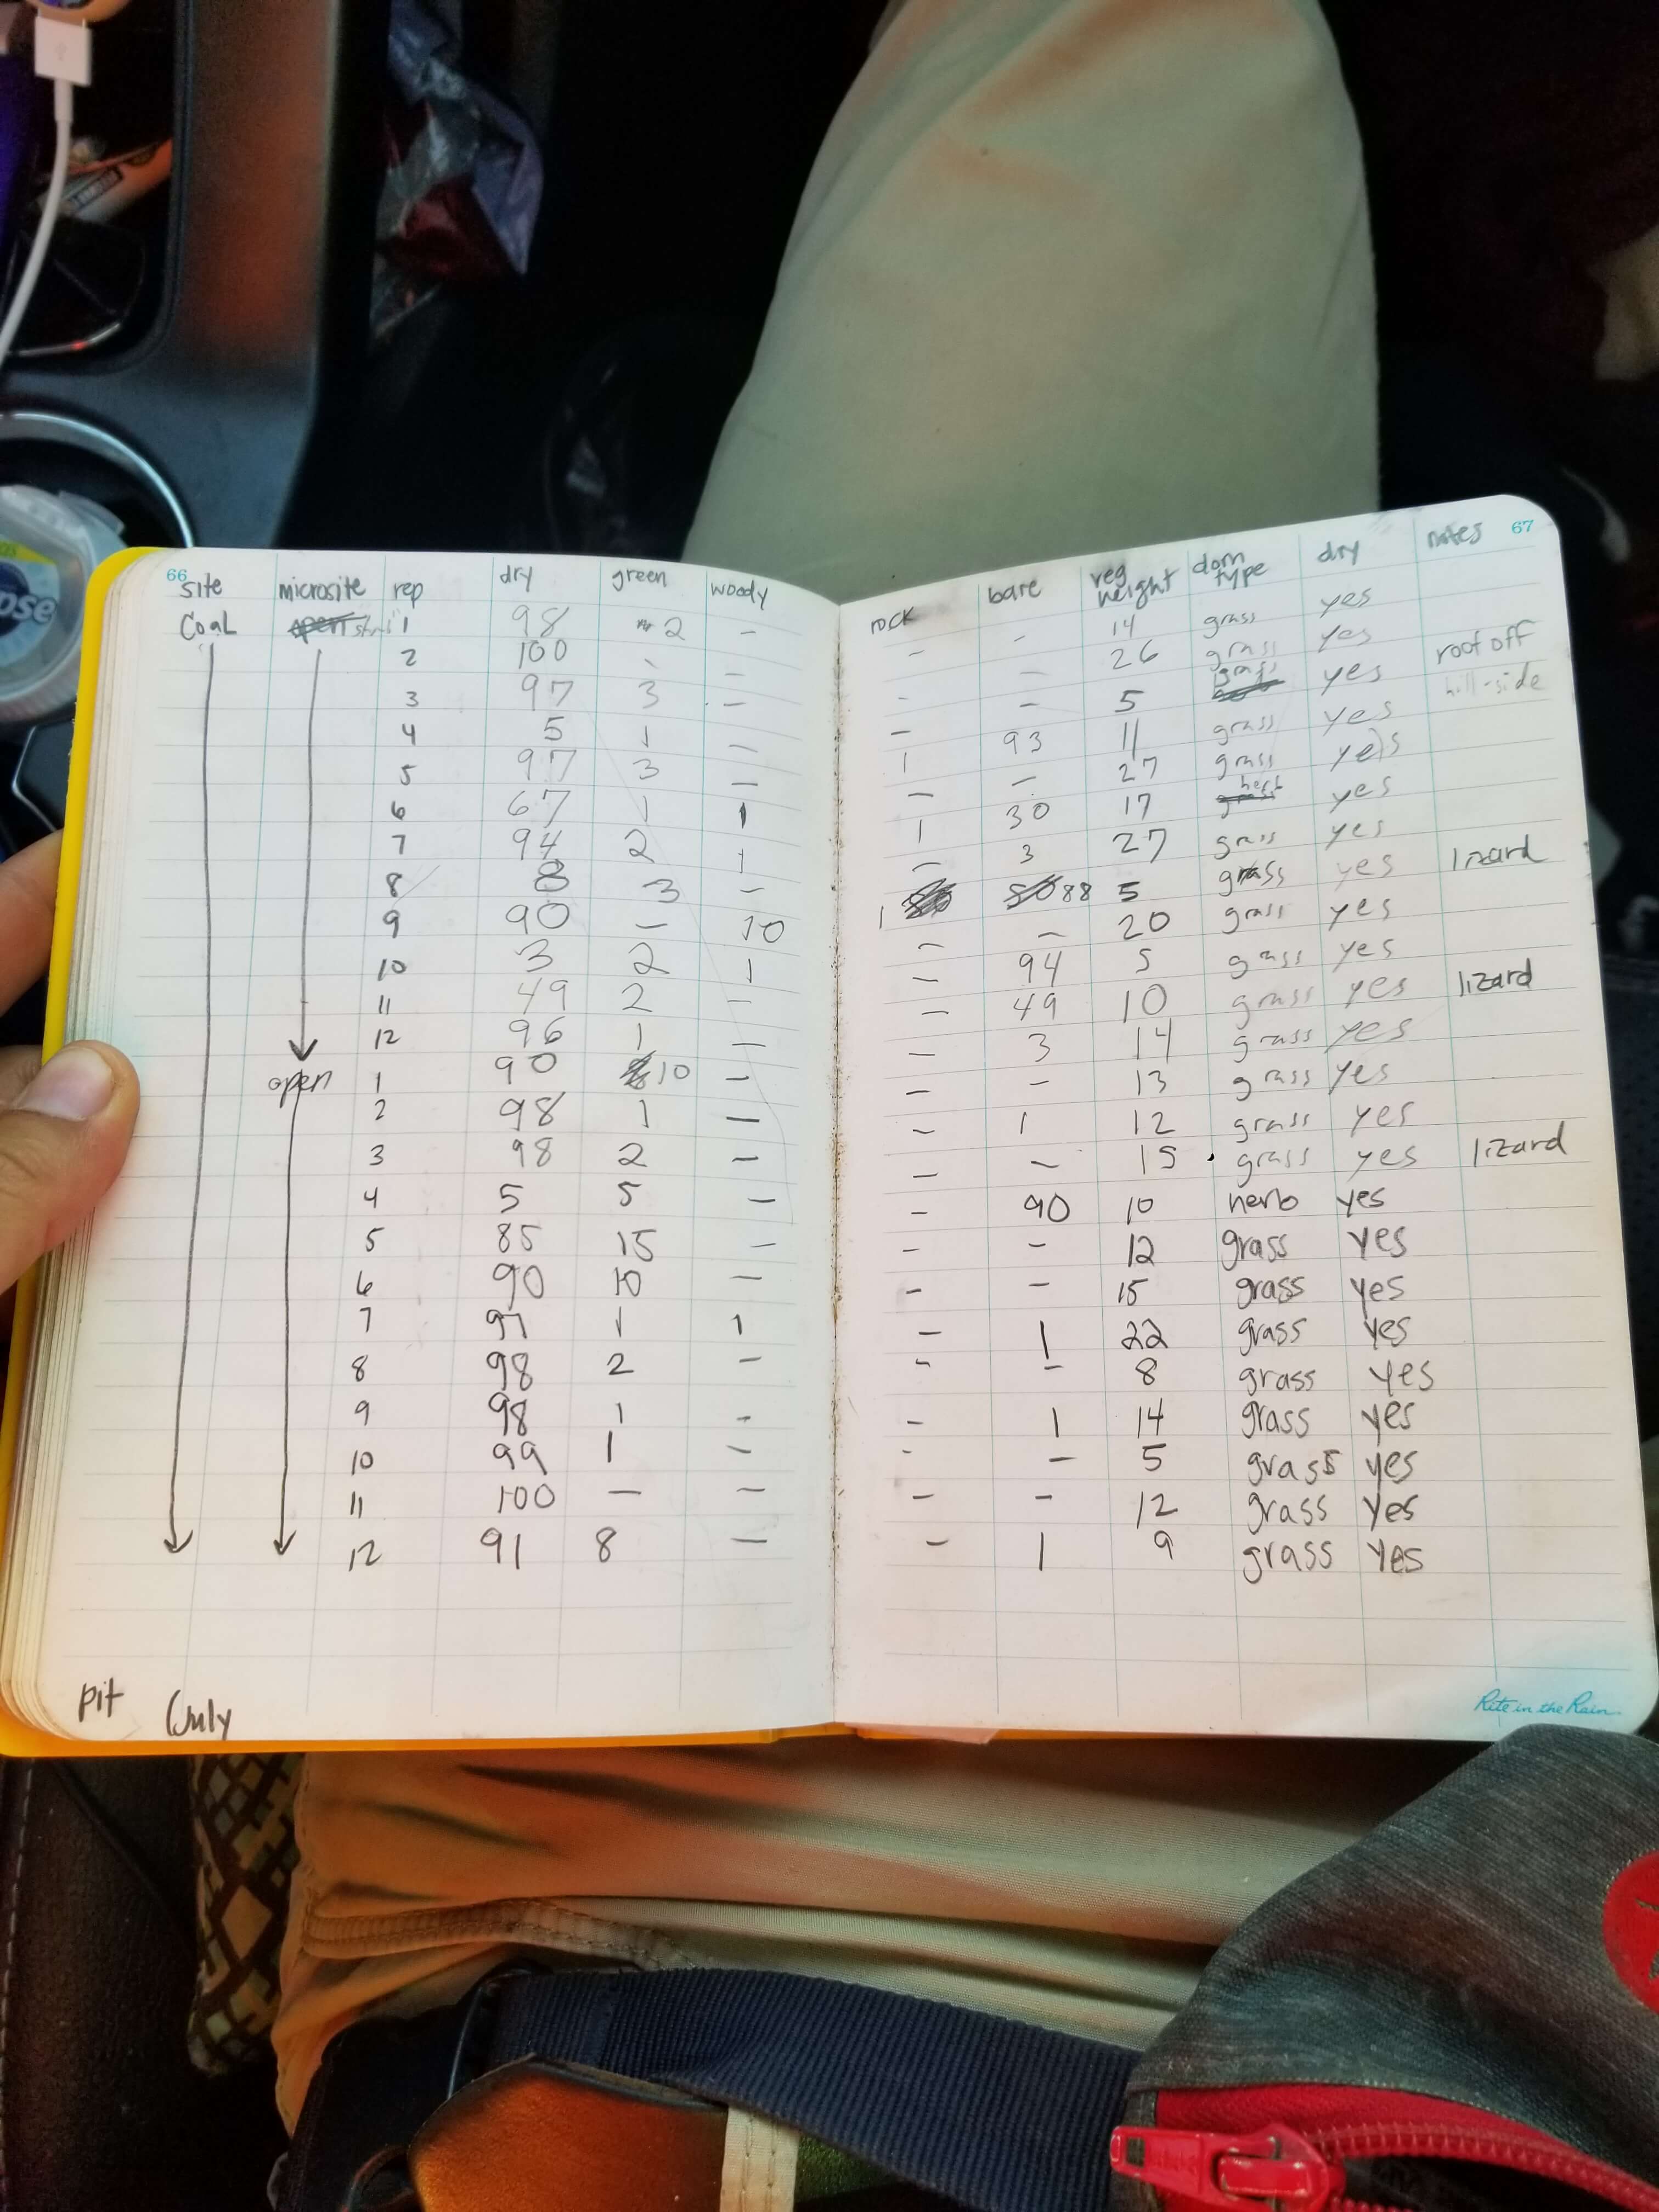 66
site microsite rep dry green woody
Coal 1 98 2 -
2 100 - -
3 97 3 -
4 5 1 -
5 97 3 -
6 67 1 1
7 94 2 1
8 8 3 -
9 90 - 10
10 3 2 1
11 49 2 -
12 96 1 -
open 1 90 10 -
2 98 1 -
3 98 2 -
4 5 5 -
5 85 15 -
6 90 10 -
7 97 1 1
8 98 2 -
9 98 1 -
10 99 1 -
11 100 - -
12 91 8 -
pit July
67
rock bare veg height dom type dry notes
- - 14 grass yes
- - 26 grass yes root off
- - 5 grass yes hill-side
1 93 11 grass yes
- - 27 grass yes
1 30 17 herb yes
- 3 27 grass yes
1 88 5 grass yes lizard
- - 20 grass yes
- 94 5 grass yes
- 49 10 grass yes lizard
- 3 14 grass yes
- - 13 grass yes
- 1 12 grass yes
- - 15 grass yes lizard
- 90 10 herb yes
- - 12 grass yes
- - 15 grass yes
- 1 22 grass yes
- - 8 grass yes
- 1 14 grass yes
- - 5 grass yes
- - 12 grass yes
- 1 9 grass yes
Rite in the Rain